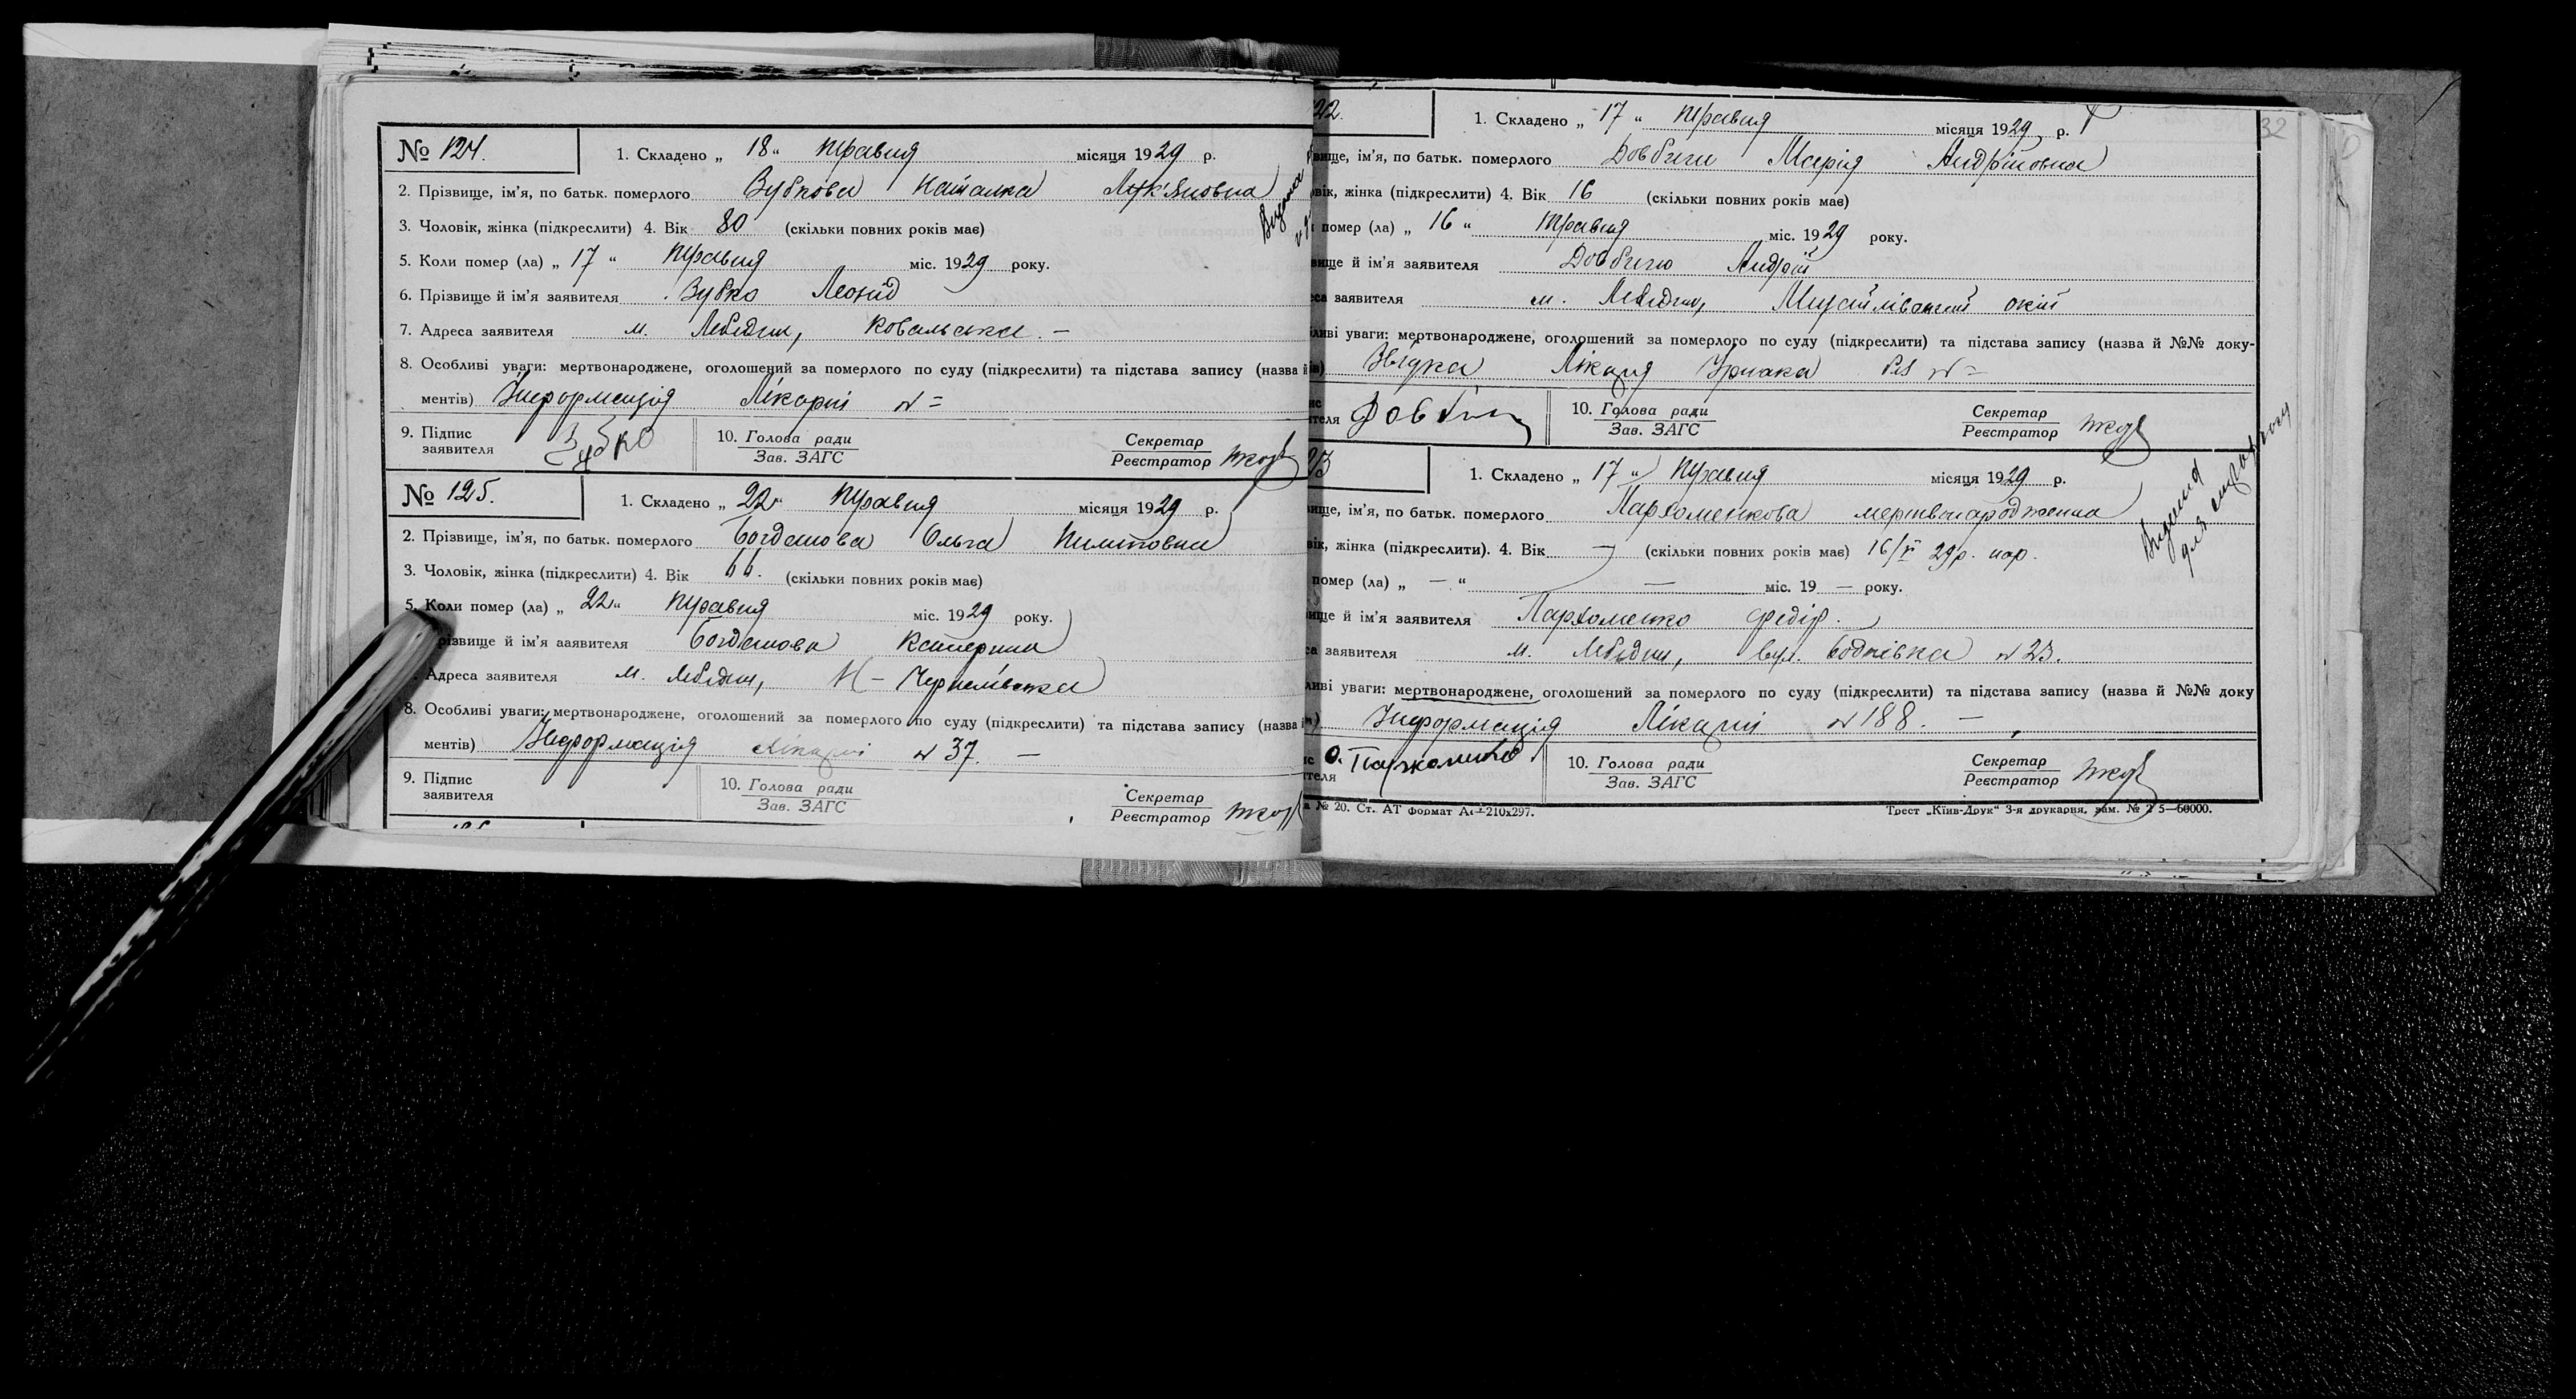 № 124.
1. Складено „ 18 “ травня місяця 1929 р.
2. Прізвище, ім'я, по батьк. померлого Зубкова Наталка Лук'яновна
3. Чоловік, жінка (підкреслити) 4. Вік 80 (скільки повних років має)
5. Коли помер (ла) „ 17 “ травня міс. 1929 року.
6. Прізвище й ім'я заявителя Зубко Леонід
7. Адреса заявителя м. Лебедин, Ковальська. –
8. Особливі уваги: мертвонароджене, оголошений за померлого по суду (підкреслити) та підстава запису (назва й
ментів) Інформація Лікарні № =
9. Підпис заявителя Зубко 10. Голова ради Зав. ЗАГС Секретар Реєстратор
№ 125.
1. Складено „ 22 “ травня місяця 1929 р.
2. Прізвище, ім'я, по батьк. померлого Богданова Ольга Пилиповна
3. Чоловік, жінка (підкреслити) 4. Вік 11. (скільки повних років має)
5. Коли помер (ла) „ 22 “ травня міс. 1929 року.
різвище й ім'я заявителя Богданова Катерина
Адреса заявителя м. Лебедин,
8. Особливі уваги: мертвонароджене, оголошений за померлого по суду (підкреслити) та підстава запису (назва
ментів) Інформація Лікарні № 37. –
9. Підпис заявителя 10. Голова ради Зав. ЗАГС Секретар Реєстратор
Видана
22.
32
1. Складено „ 17 “ травня місяця 1929 р.
вище, ім'я, по батьк. померлого Довбиш Марія Андріївна
вік, жінка (підкреслити) 4. Вік 16 (скільки повних років має)
помер (ла) „ 16 “ травня міс. 1929 року.
вище й ім'я заявителя Андрій
са заявителя м. Лебедин,
ливі уваги: мертвонароджене, оголошений за померлого по суду (підкреслити) та підстава запису (назва й №№ доку-
Лікаря № =
теля 10. Голова ради Зав. ЗАГС Секретар Реєстратор
23
1. Складено „ 17 “ травня місяця 1929 р.
вище, ім'я, по батьк. померлого Пархоменкова мертвонароджена
вік, жінка (підкреслити). 4. Вік – (скільки повних років має) 16/V 29р. нар.
помер (ла) „ – “ – міс. 19 – року.
вище й ім'я заявителя Пархоменко Федір.
са заявителя м. Лебедин, вул. № 23.
ливі уваги: мертвонароджене, оголошений за померлого по суду (підкреслити) та підстава запису (назва й №№ доку
Інформація Лікарні № 188. –
теля Пархоменко 10. Голова ради Зав. ЗАГС Секретар Реєстратор
№ 20. Ст. АТ формат А4–210х297.
Трест „Київ-Друк“ 3-я друкарня, зам. №